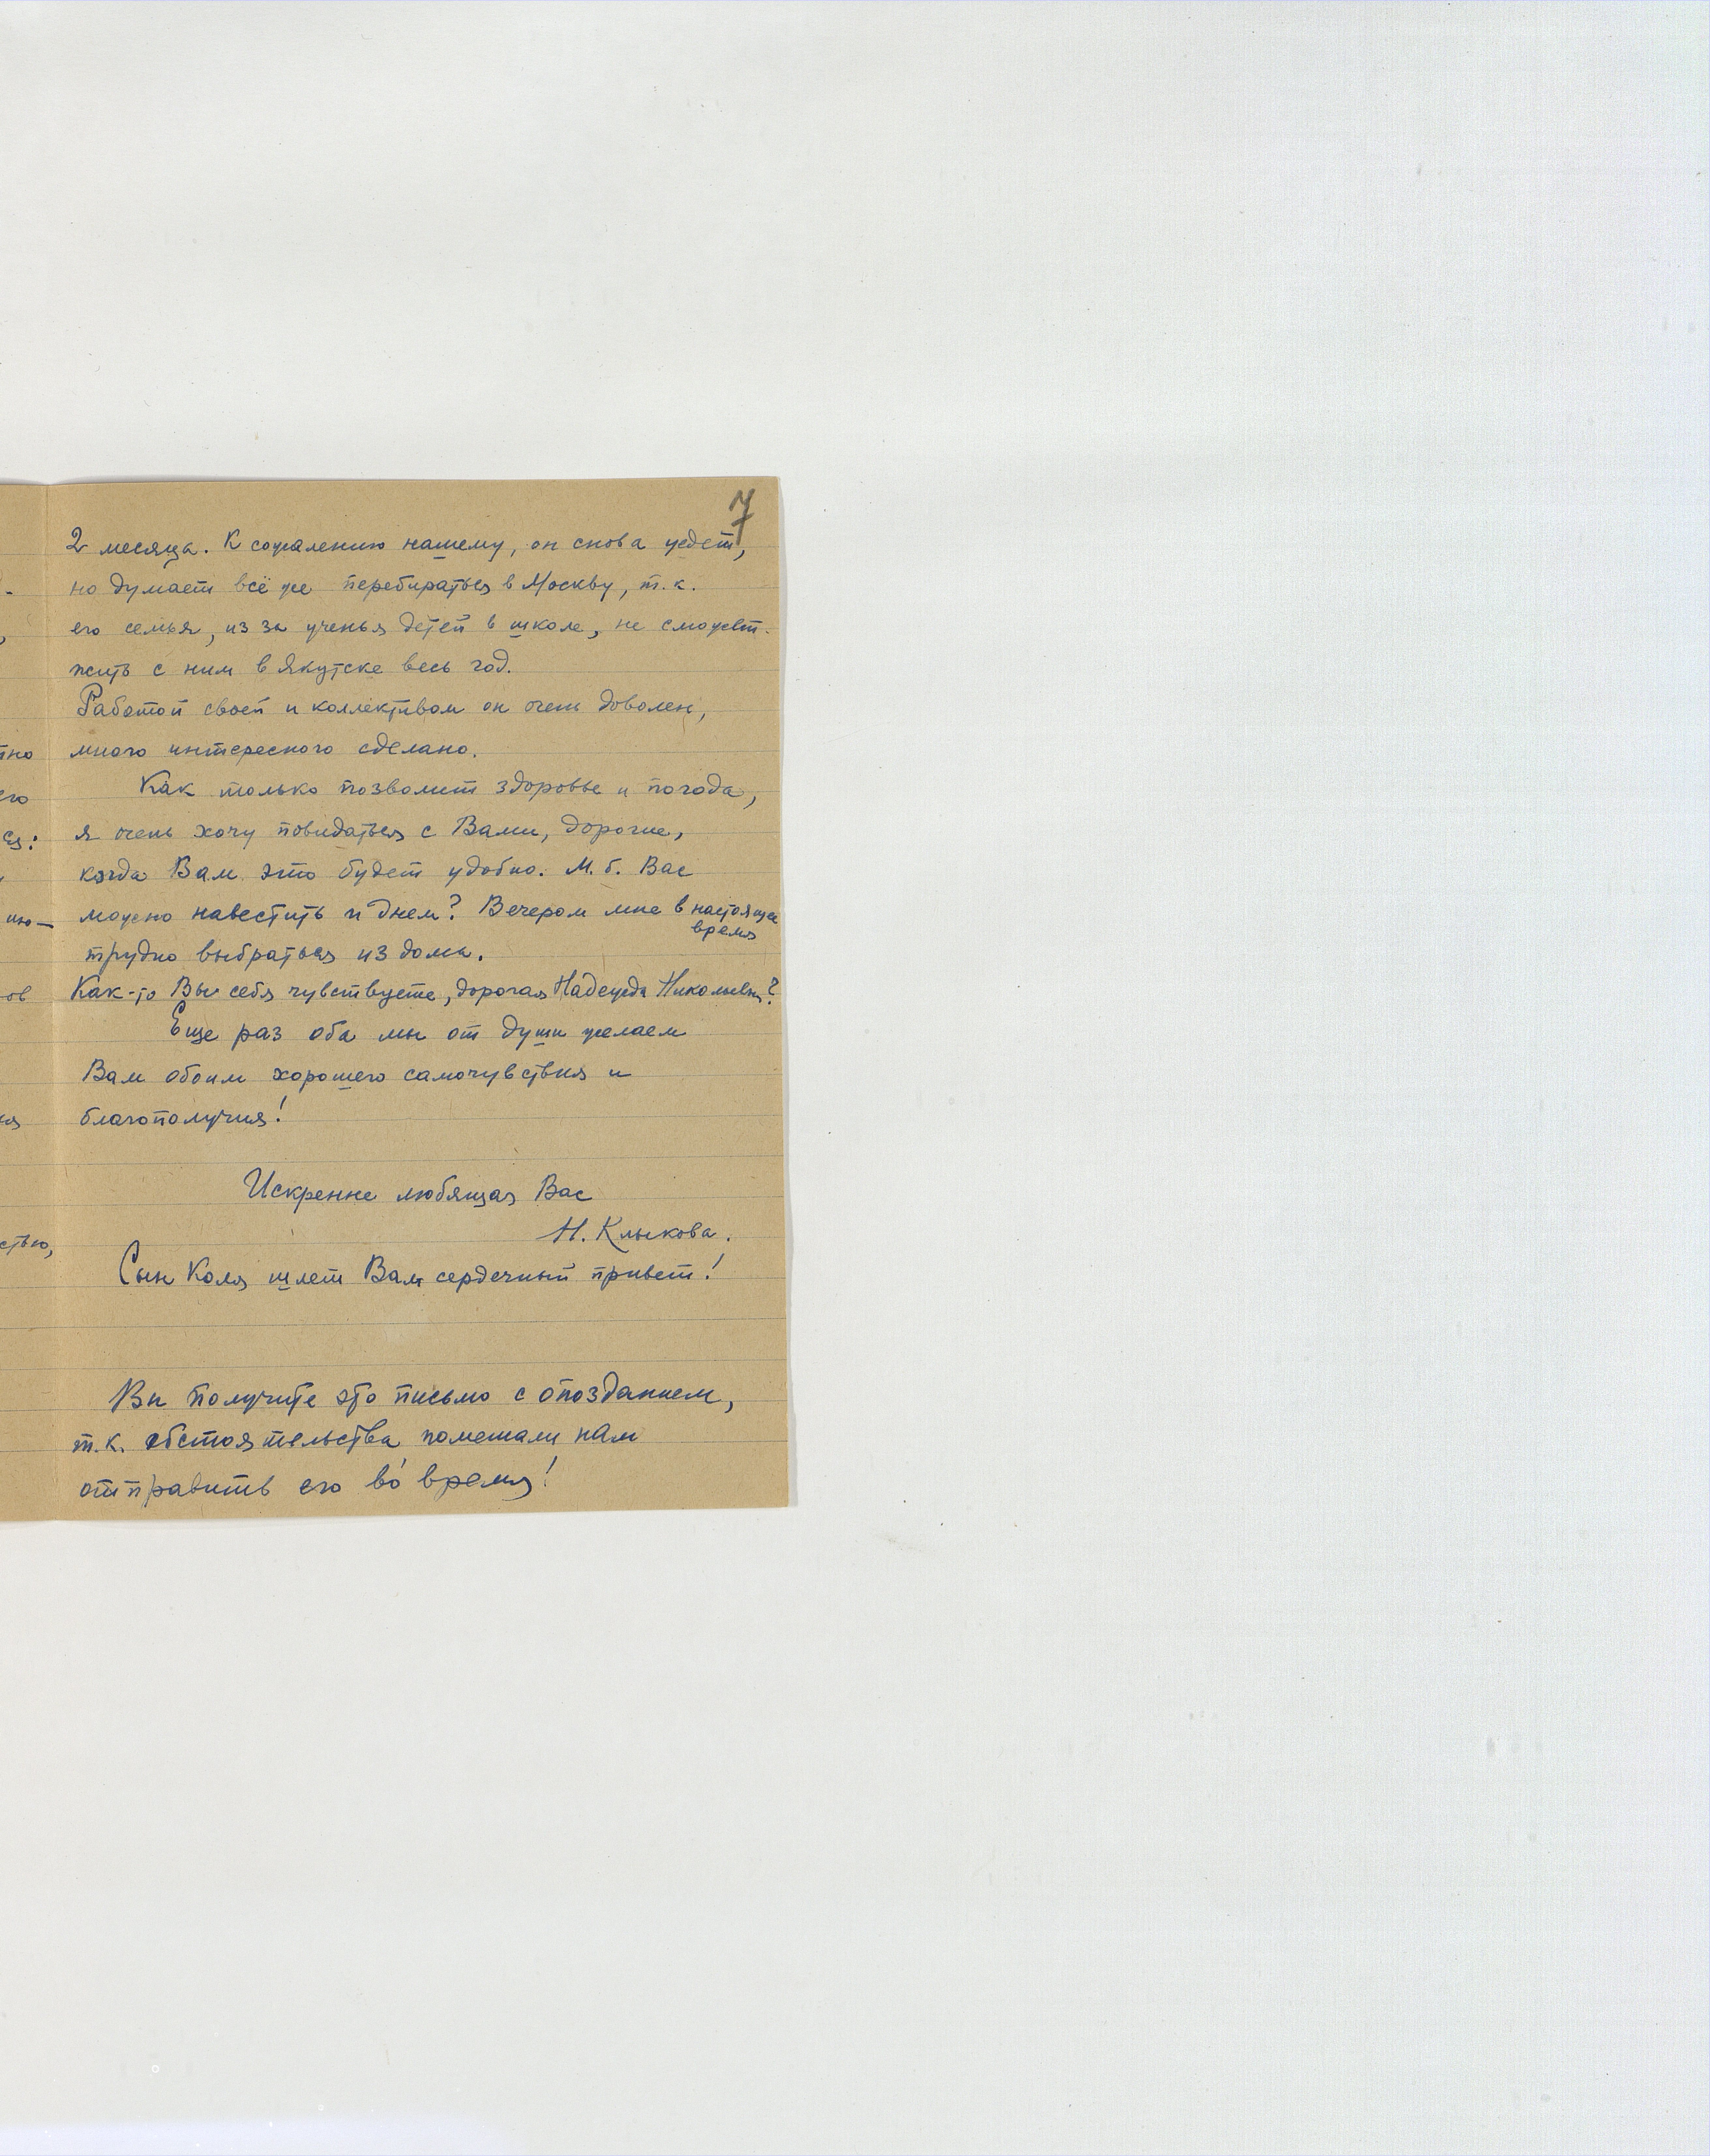 7
2 месяца. К сожалению нашему, он снова уедет,
но думает всё же перебираться в Москву, т.к.
его семья, из за ученья детей в школе, не сможет
жить с ним в Якутске весь год.
Работой своей и коллективом он очень доволен,
много интересного сделано.
Как только позволит здоровье и погода,
я очень хочу повидаться с Вами, дорогие,
когда Вам это будет удобно. М. б. Вас
можно навестить и днем? Вечером мне в настоящее
время
трудно выбраться из дома.
Как-то Вы себя чувствуете, дорогая Надежда Николаевна?
Еще раз оба мы от души желаем
Вам обоим хорошего самочувствия и
благополучия!
Искренне любящая Вас
Н. Клыкова.
Сын Коля шлет Вам сердечный привет!
Вы получите это письмо с опозданием,
т.к. обстоятельства помешали нам
отправить его во́ время!